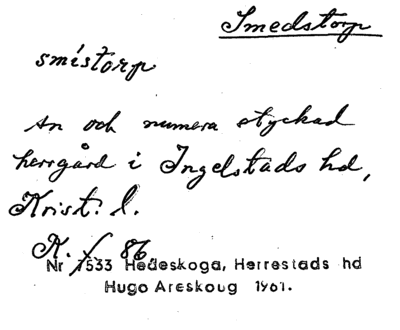 Smedstorp
smistorp
sn och numera styckad
herrgård i Ingelstads hd,
Krist. l.
K. f 86
Nr 1533 Hedeskoga, Herrestads hd
Hugo Areskoug 1961.